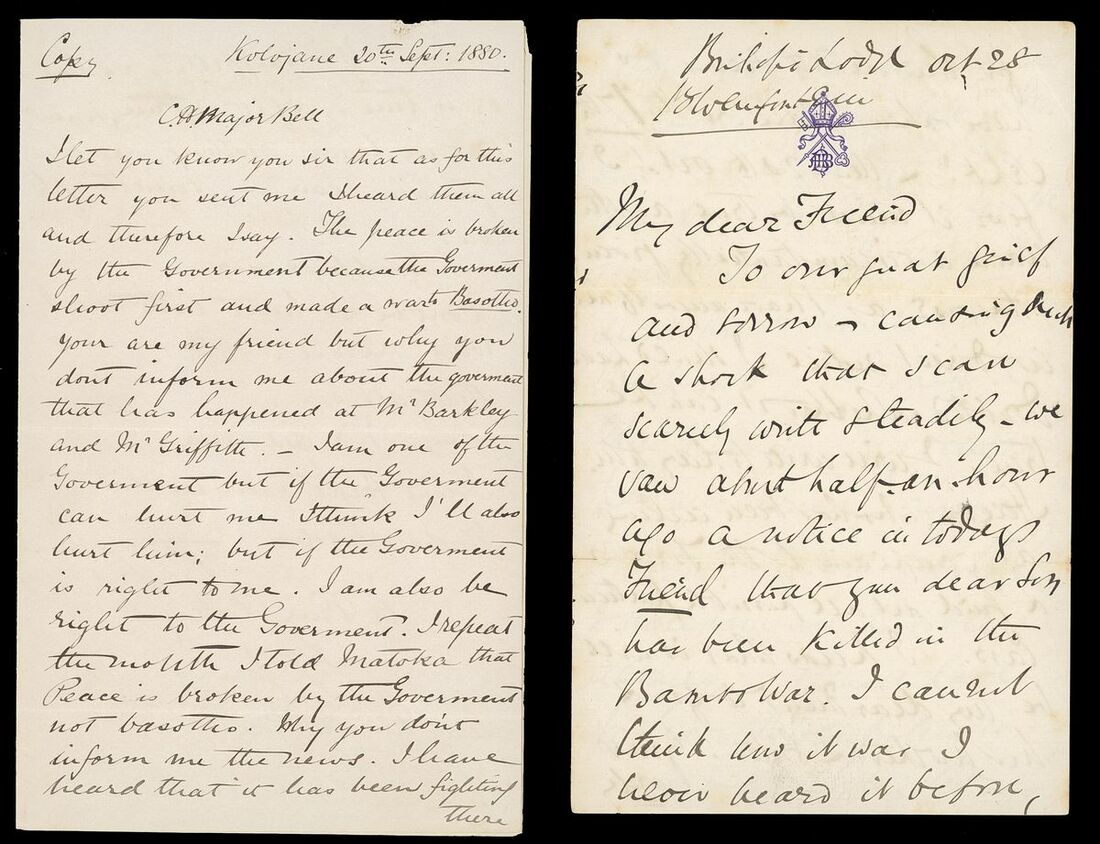 Copy
Kolojane 20th Sept: 1880.
C.H. Major Bell
I let you know you sir that as for this
letter you sent me I heard them all
and therefore I say. The peace is broken
by the Government because the Goverment
shoot first and made a war to Basotho.
Your are my friend but why you
dont inform me about the goverment
that has happened at Mr Barkley
and Mr Griffith. – I am one of the
Goverment but if the Goverment
can hurt me I think I'll also
hurt him; but if the Goverment
is right to me. I am also be
right to the Goverment. I repeat
the mouth I told Matoka that
Peace is broken by the Goverment
not basotho. Why you don't
inform me the news. I have
heard that it has been fighting
there
Bishop's Lodge Oct 28
Bloemfontein
My dear Friend
To our great grief
and sorrow – causing such
a shock that I can
scarcely write steadily – we
saw about half-an-hour
ago a notice in todays
Friend that your dear Son
has been killed in the
Basuto War. I cannot
think how it was I
never heard it before,